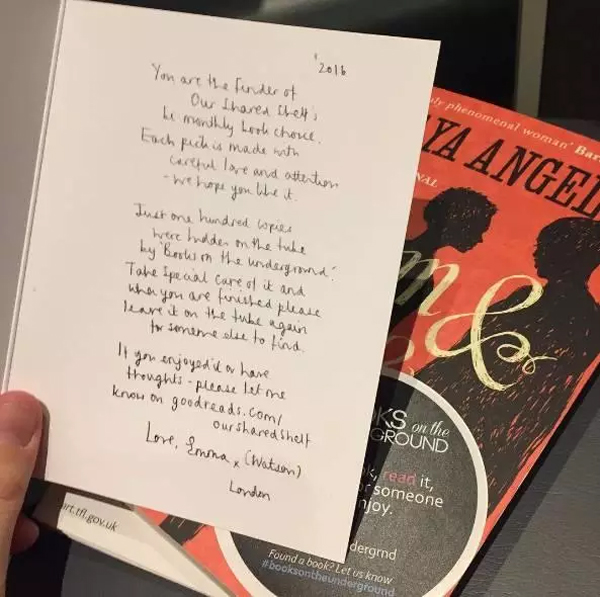 '2016
You are the finder of
Our Shared Shelf's
bi monthly book choice.
Each pick is made with
careful love and attention
- we hope you like it.
Just one hundred copies
were hidden on the tube
by 'Books on the underground'.
Take special care of it and
when you are finished please
leave it on the tube again
for someone else to find.
If you enjoyed it or have
thoughts - please let me
know on goodreads.com/
oursharedshelf
Love, Emma x (Watson)
London
phenomenal woman' Bar
YA ANGEL
NAL
m &
KS on the
GROUND
k, read it,
r someone
njoy.
dergrnd
Found a book? Let us know
#booksontheunderground
art.tfl.gov.uk